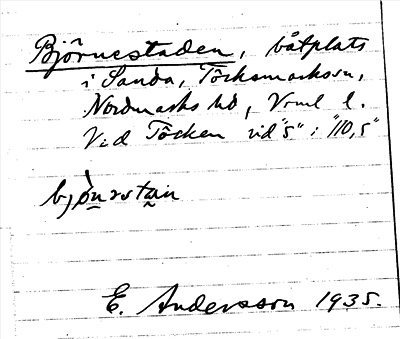 Björnestaden, båtplats
i Sanda, Töcksmarks sn,
Nordmarks hd, Vrml l.
Vid Töcken vid "5" i "110,5"
bjö̀n̲rsta̲n
E. Andersson 1935.